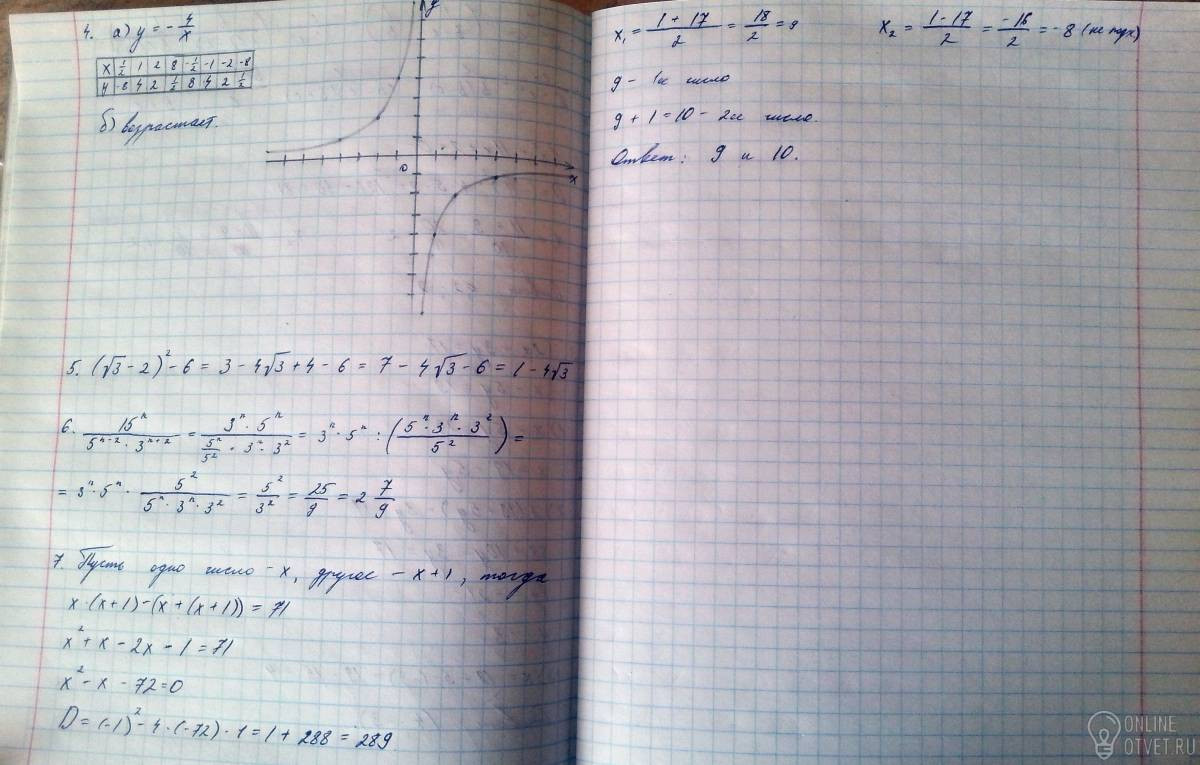 4. а) y = -4/x
x | 1/2 | 1 | 2 | 8 | -1/2 | -1 | -2 | -8
y | -8 | 4 | 2 | 1/2 | 8 | 4 | 2 | 1/2
б) возрастает.
y
0
x
5. (√3 - 2)² - 6 = 3 - 4√3 + 4 - 6 = 7 - 4√3 - 6 = 1 - 4√3
6. 15ⁿ/(5ⁿ⁻² · 3ⁿ⁺²) = (3ⁿ · 5ⁿ)/(5ⁿ/5² · 3ⁿ · 3²) = 3ⁿ · 5ⁿ : ((5ⁿ · 3ⁿ · 3²)/5²) =
= 3ⁿ · 5ⁿ · 5²/(5ⁿ · 3ⁿ · 3²) = 5²/3² = 25/9 = 2 7/9
7. Пусть одно число - x, другое - x+1, тогда
x·(x+1)-(x+(x+1)) = 71
x² + x - 2x - 1 = 71
x² - x - 72 = 0
D = (-1)² - 4·(-72)·1 = 1 + 288 = 289
x₁ = (1+17)/2 = 18/2 = 9 x₂ = (1-17)/2 = -16/2 = -8 (не подх)
9 - 1е число
9 + 1 = 10 - 2ое число.
Ответ: 9 и 10.
ONLINE
OTVET.RU